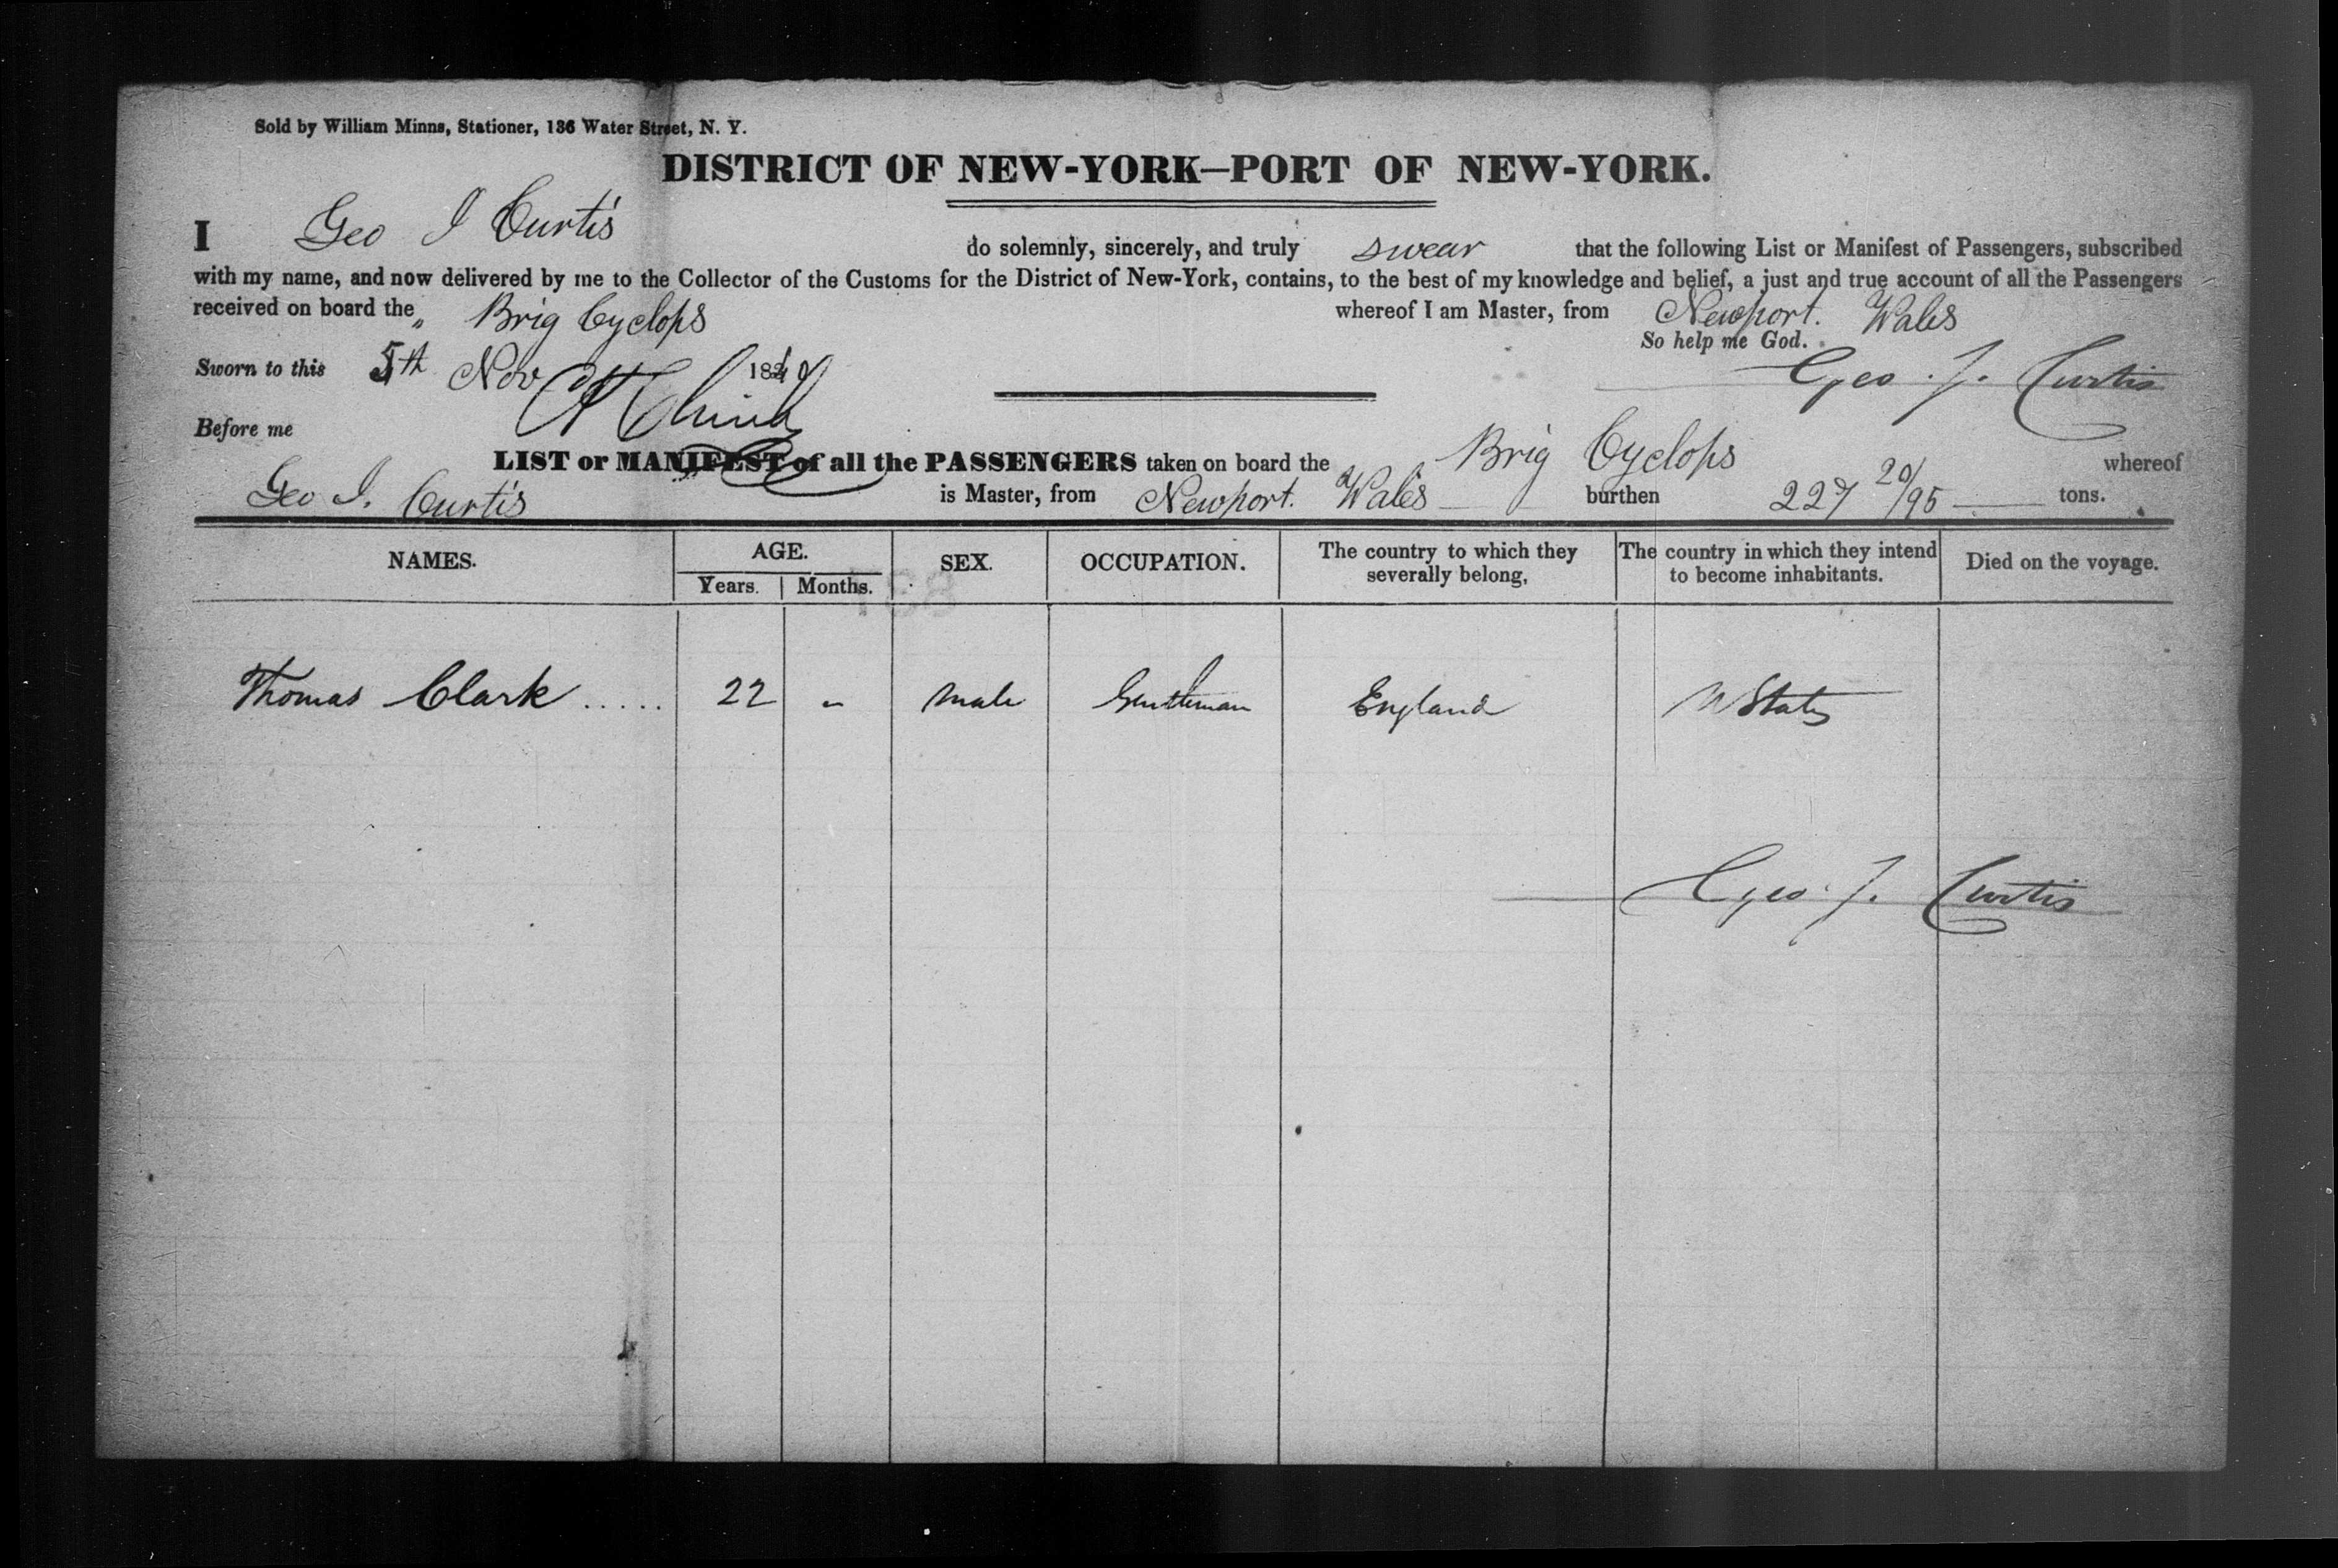 Sold by William Minns, Stationer, 136 Water Street, N. Y.
DISTRICT OF NEW-YORK—PORT OF NEW-YORK.
I Geo I Curtis do solemnly, sincerely, and truly swear that the following List or Manifest of Passengers, subscribed
with my name, and now delivered by me to the Collector of the Customs for the District of New-York, contains, to the best of my knowledge and belief, a just and true account of all the Passengers
received on board the „ Brig Cyclops whereof I am Master, from Newport. Wales
So help me God.
Sworn to this 5th Nov 184 Geo. J. Curtis
Before me
LIST or MANIFEST of all the PASSENGERS taken on board the Brig Cyclops whereof
Geo I. Curtis is Master, from Newport. Wales burthen 227 20/95 tons.
NAMES. AGE. SEX. OCCUPATION. The country to which they severally belong, The country in which they intend to become inhabitants. Died on the voyage.
Years. Months.
Thomas Clark ..... 22 „ Male Gentleman England U States
Geo. J. Curtis